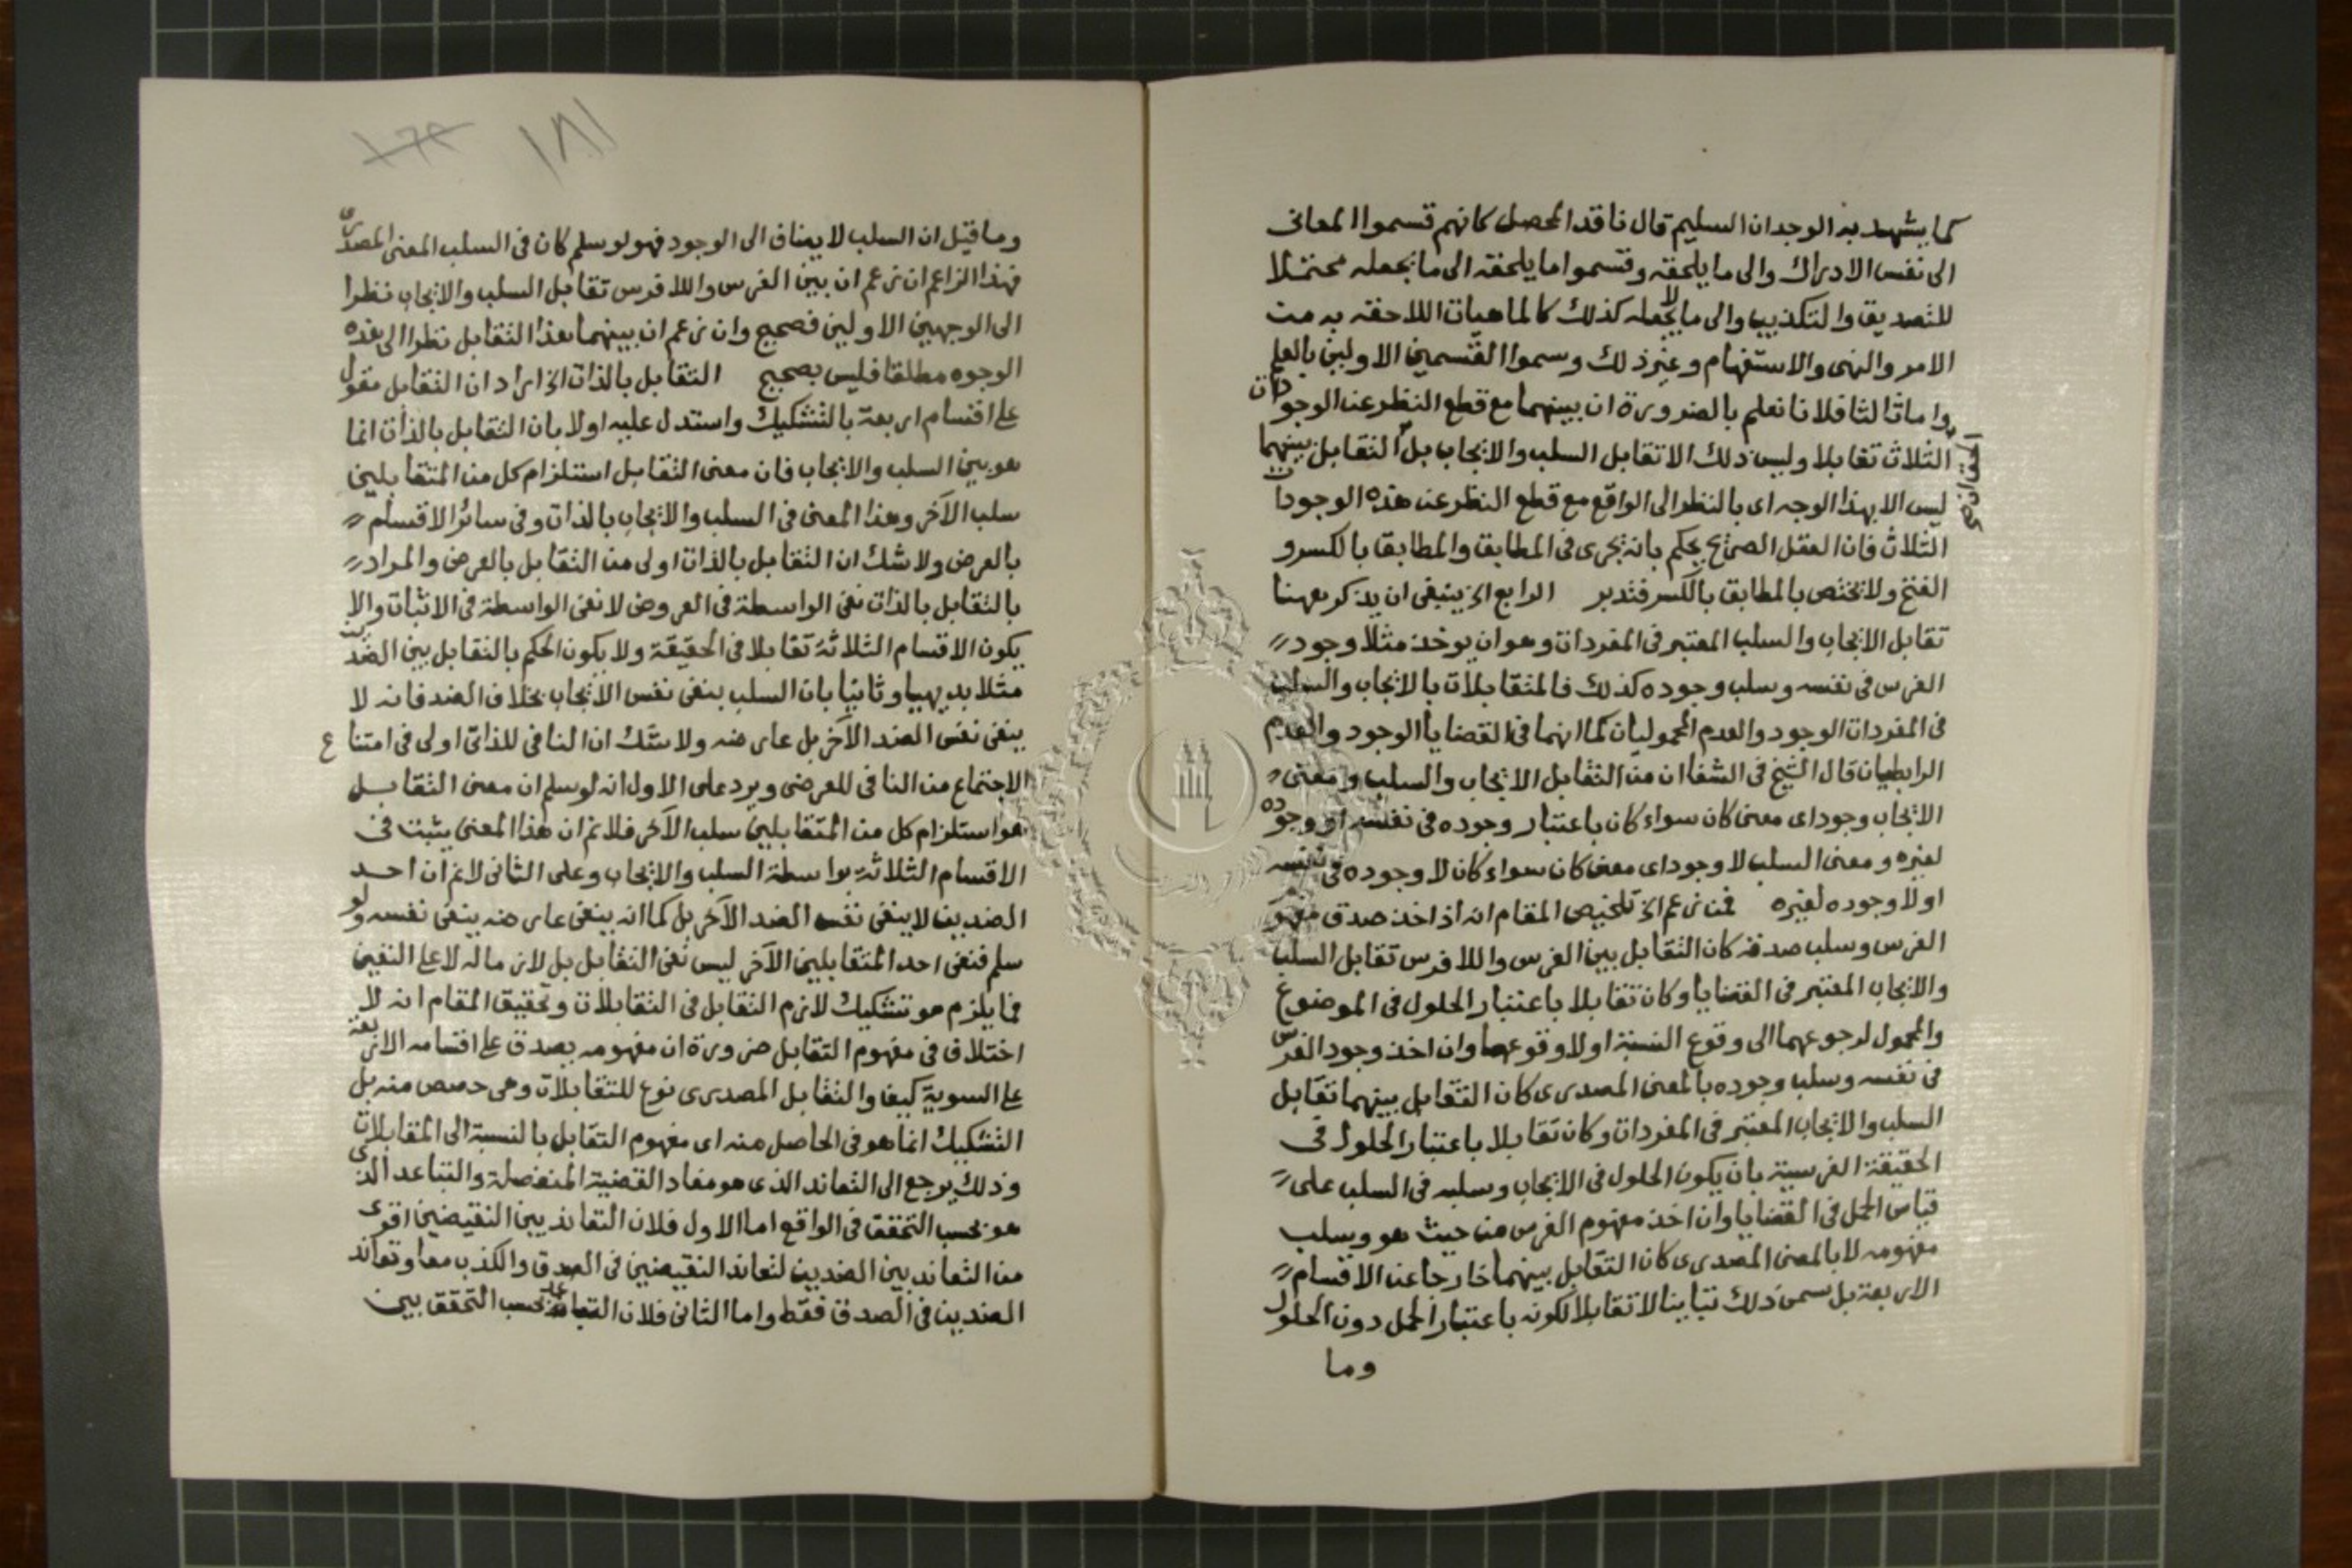 كما يشهد به الوجدان السليم قال ناقد المحصل كانهم قسموا المعانى
الى نفس الادراك والى ما يلحقه وقسموا ما يلحقه الى ما يجعله محتملا
للتصديق والتكذيب والى ما لا يجعله كذلك كالماهيات اللاحقه به من
الامر والنهى والاستفهام وغير ذلك وسموا القسمين الاولين بالعلم
واما ثالثا فلانا نعلم بالضرورة ان بينهما مع قطع النظر عن الوجودات
الثلاث تقابلا وليس ذلك الا تقابل السلب والايجاب بل التقابل بينهما
ليس الا بهذا الوجه اى بالنظر الى الواقع مع قطع النظر عن هذه الوجودات
الثلاث فان العقل الصريح يحكم بانه يجرى فى المطابق والمطابق بالكسر و
الفتح ولا يختص بالمطابق بالكسر فتدبر الرابع الخ ينبغى ان يذكر ههنا
تقابل الايجاب والسلب المعتبر فى المفردات وهو ان يوخذ مثلا وجود
الفرس فى نفسه وسلب وجوده كذلك فالمتقابلات بالايجاب والسلب
فى المفردات الوجود والعدم المحموليان كما انهما فى القضايا الوجود والعدم
الرابطيان قال الشيخ فى الشفا ان من التقابل الايجاب والسلب ومعنى
الايجاب وجود اى معنى كان سواء كان باعتبار وجوده فى نفسه او وجوده
لغيره ومعنى السلب لا وجود اى معنى كان سواء كان لا وجوده فى نفسه
او لا وجوده لغيره فمن زعم الخ تلخيص المقام انه اذا اخذ صدق مفهوم
الفرس وسلب صدقه كان التقابل بين الفرس واللافرس تقابل السلب
والايجاب المعتبر فى القضايا وكان تقابلا باعتبار الحلول فى الموضوع
والمحمول لرجوعهما الى وقوع النسبة او لا وقوعها وان اخذ وجود الفرس
فى نفسه وسلب وجوده بالمعنى المصدرى كان التقابل بينهما تقابل
السلب والايجاب المعتبر فى المفردات وكان تقابلا باعتبار الحلول فى
الحقيقة الفرسية بان يكون الحلول فى الايجاب وسلبه فى السلب على
قياس الحمل فى القضايا وان اخذ مفهوم الفرس من حيث هو وسلب
مفهومه لا بالمعنى المصدرى كان التقابل بينهما خارجا عن الاقسام
الاربعة بل سمى ذلك تباينا لا تقابلا لكونه باعتبار الحمل دون الحلول
وما
١٨١
وما قيل ان السلب لا يضاف الى الوجود فهو لو سلم كان فى السلب المعنى المصدرى
فهذا الزاعم ان زعم ان بين الفرس واللافرس تقابل السلب والايجاب نظرا
الى الوجهين الاولين فصحيح وان زعم ان بينهما هذا التقابل نظرا الى هذه
الوجوه مطلقا فليس بصحيح التقابل بالذات الخ اراد ان التقابل مقول
على اقسام اربعة بالتشكيك واستدل عليه اولا بان التقابل بالذات انما
هو بين السلب والايجاب فان معنى التقابل استلزام كل من المتقابلين
سلب الآخر وهذا المعنى فى السلب والايجاب بالذات وفى سائر الاقسام
بالعرض ولا شك ان التقابل بالذات اولى من التقابل بالعرض والمراد
بالتقابل بالذات نفى الواسطة فى العروض لا نفى الواسطة فى الاثبات والا
يكون الاقسام الثلاثة تقابلا فى الحقيقة ولا يكون الحكم بالتقابل بين الضدين
مثلا بديهيا وثانيا بان السلب ينفى نفس الايجاب بخلاف الضد فانه لا
ينفى نفس الضد الآخر بل عارضه ولا شك ان النافى للذاتى اولى فى امتناع
الاجتماع من النافى للعرضى ويرد على الاول انه لو سلم ان معنى التقابل
هو استلزام كل من المتقابلين سلب الآخر فلا نم ان هذا المعنى يثبت فى
الاقسام الثلاثة بواسطة السلب والايجاب وعلى الثانى لا نم ان احد
الضدين لا ينفى نفس الضد الآخر بل كما انه ينفى عارضه ينفى نفسه ولو
سلم فنفى احد المتقابلين الآخر ليس نفى التقابل بل لازم ماله لا على النفين
فما يلزم هو تشكيك لازم التقابل فى التقابلات وتحقيق المقام انه لا
اختلاف فى مفهوم التقابل ضرورة ان مفهومه يصدق على اقسامه الاربعة
على السوية كيف والتقابل المصدرى نوع للتقابلات وهى حصص منه بل
التشكيك انما هو فى الحاصل منه اى مفهوم التقابل بالنسبة الى المتقابلات
وذلك يرجع الى التعاند الذى هو مفاد القضية المنفصلة والتباعد الذى
هو بحسب التحقق فى الواقع اما الاول فلان التعاند بين النقيضين اقوى
من التعاند بين الضدين لتعاند النقيضين فى الصدق والكذب معا وتعاند
الضدين فى الصدق فقط واما الثانى فلان التباعد بحسب التحقق بين